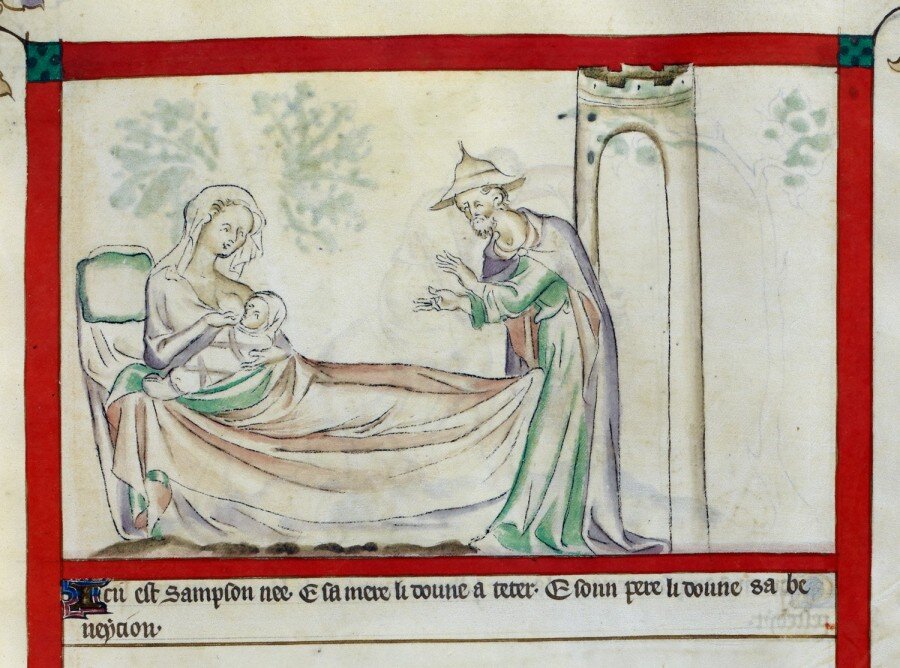 Icii est Sampson nee· E sa mere li doune a teter· E sonn pere li doune sa be
neycion·